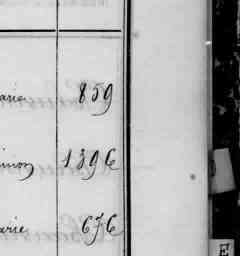 arie 859
imon 1396
arie 676
E